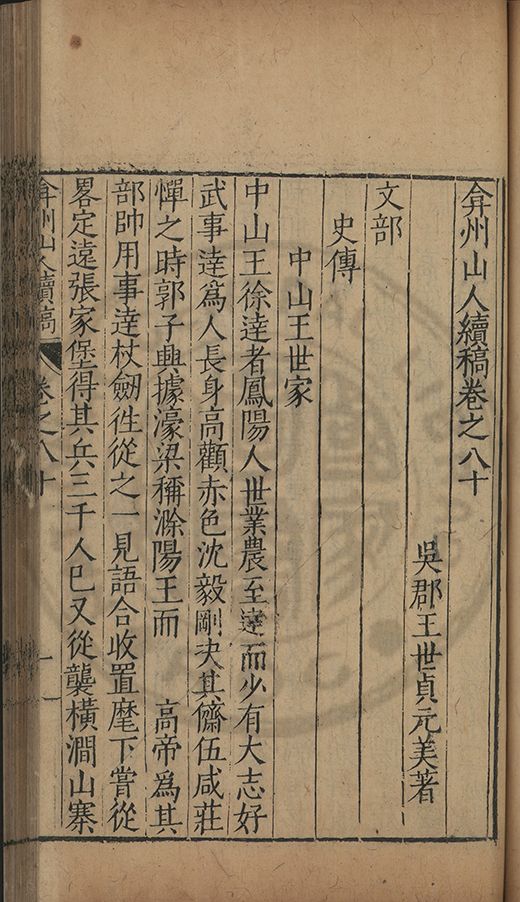 弇州山人續稿卷之八十
吳郡王世貞元美著
文部
史傳
中山王世家
中山王徐達者鳳陽人世業農至達而少有大志好
武事達爲人長身高顴赤色沈毅剛决其儕伍咸莊
憚之時郭子興據濠梁稱滁陽王而 高帝爲其
部帥用事達杖劒徃從之一見語合收置麾下嘗從
畧定遠張家堡得其兵三千人巳又從襲橫澗山寨
弇州山人續稿 卷之八十 一